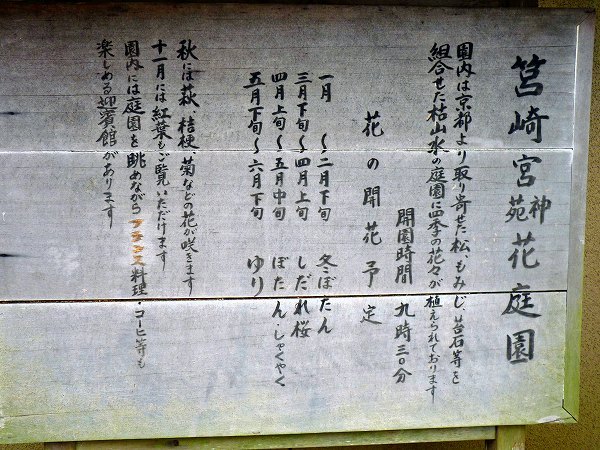 筥崎宮神苑花庭園
園内は京都より取り寄せた松、もみじ、苔石等を
組合せた枯山水の庭園に四季の花々が植えられております
開園時間 九時三〇分
花の開花予定
一月 〜二月下旬 冬ぼたん
三月下旬〜四月上旬 しだれ桜
四月上旬〜五月中旬 ぼたん・しゃくやく
五月下旬〜六月下旬 ゆり
秋には萩、桔梗、菊などの花が咲きます
十一月には紅葉もご覧いただけます
園内には庭園を眺めながらフランス料理・コーヒー等も
楽しめる迎賓館があります